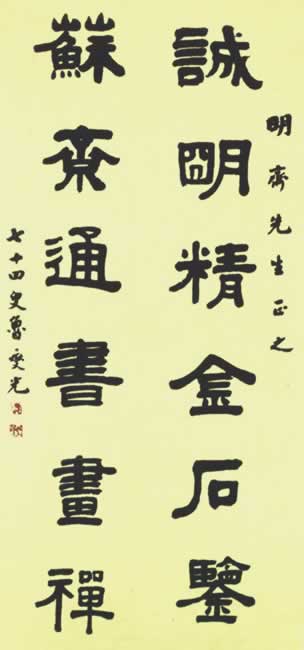 明齊先生正之
誠明精金石鑒
蘇齋通書畫禪
七十四叟魯燮光